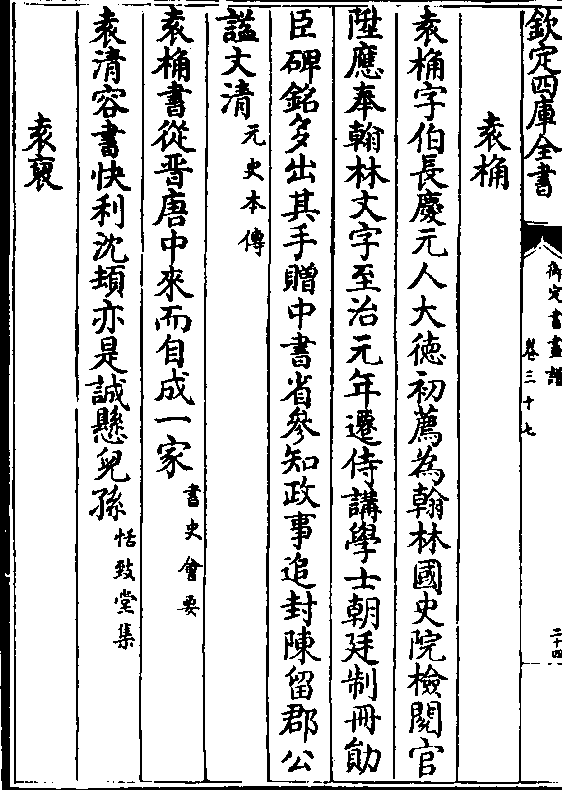 欽定四庫全書
御定書畫譜
卷三十七
二十四
袁桷
袁桷字伯長慶元人大德初薦為翰林國史院檢閱官
陞應奉翰林文字至治元年遷侍講學士朝廷制冊勛
臣碑銘多出其手贈中書省參知政事追封陳留郡公
謚文清元史本傳
袁桷書從晉唐中來而自成一家書史會要
袁清容書快利沈頓亦是誠懸兒孫恬致堂集
袁裒